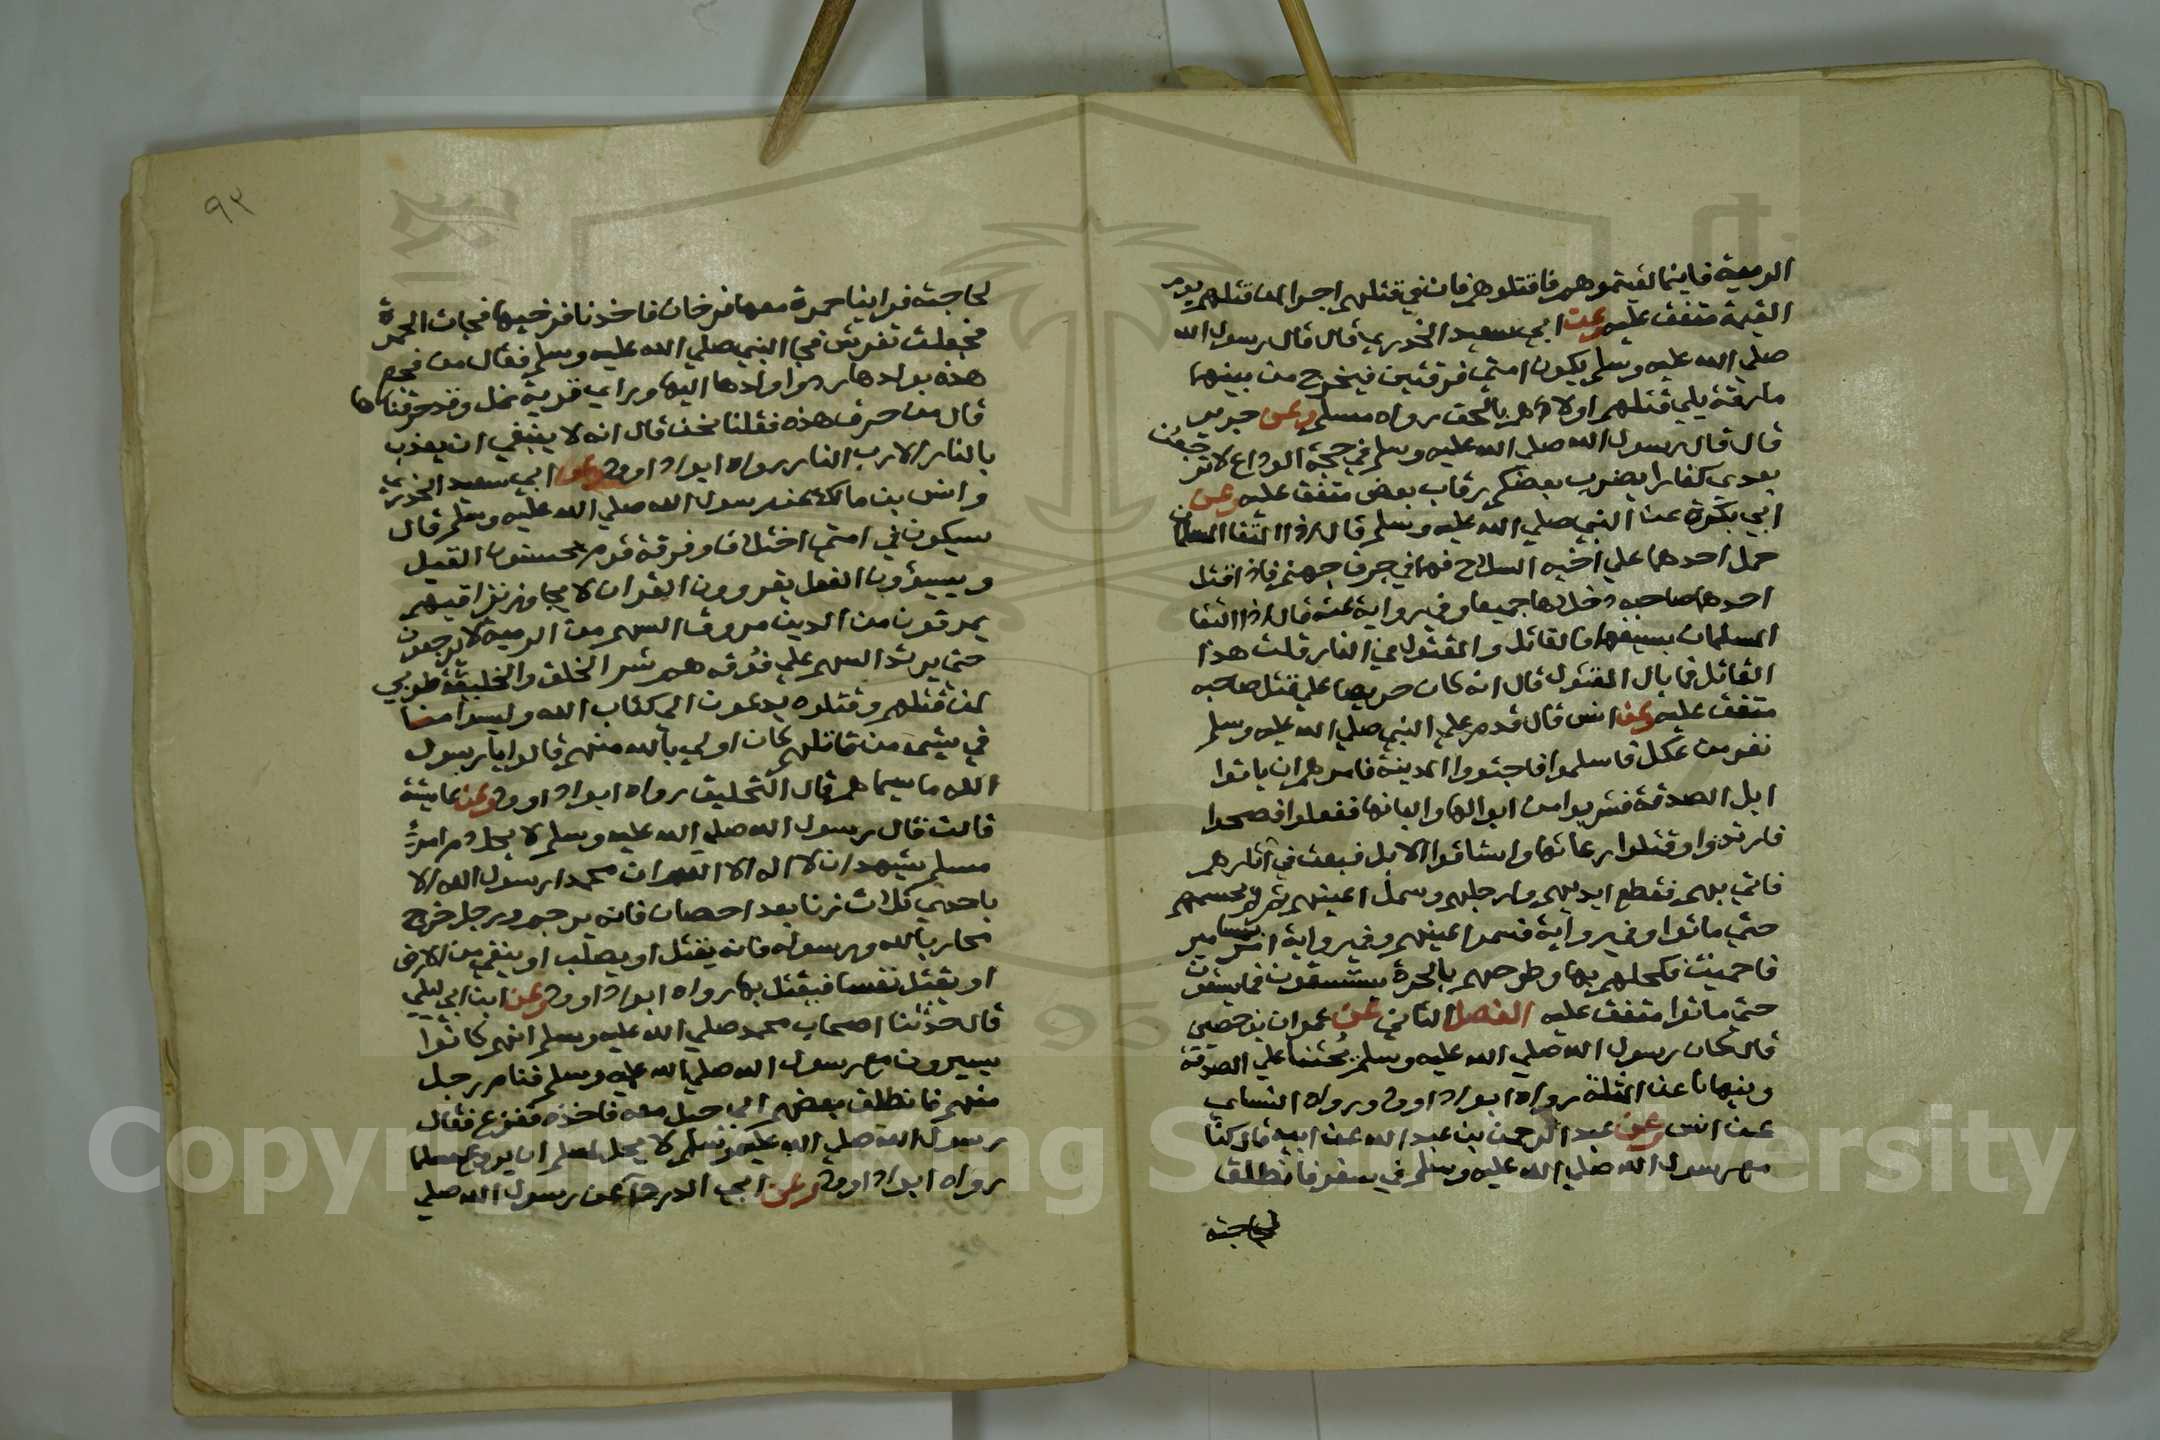 الرمية فاينما لقيتموهم فاقتلوهم فان في قتلهم اجرا لمن قتلهم يوم
القيمة متفق عليه وعن ابي سعيد الخدري قال قال رسول الله
صلي الله عليه وسلم يكون امتي فرقتين فيخرج من بينهما
مارقة يلي قتلهم اولاهم بالحق رواه مسلم وعن جرير
قال قال رسول الله صلي الله عليه وسلم في حجة الوداع لا ترجعن
بعدي كفارا يضرب بعضكم رقاب بعض متفق عليه وعن
ابي بكرة عن النبي صلي الله عليه وسلم قال اذا التقا المسلمان
حمل احدهما علي اخيه السلاح فهما في جرف جهنم فاذا قتل
احدهما صاحبه دخلاها جميعا وفي رواية عنه قال اذا التقا
المسلمان بسيفهما فالقاتل والمقتول في النار قلت هذا
القاتل فما بال المقتول قال انه كان حريصا علي قتل صاحبه
متفق عليه وعن انس قال قدم علي النبي صلي الله عليه وسلم
نفر من عكل فاسلموا فاجتووا المدينة فامرهم ان ياتوا
ابل الصدقة فشربوا من ابوالها والبانها ففعلوا فصحوا
فارتدوا وقتلوا رعاتها واستاقوا الابل فبعث في آثارهم
فاتي بهم فقطع ايديهم وارجلهم وسمل اعينهم ثم لم يحسمهم
حتي ماتوا وفي رواية فسمروا اعينهم وفي رواية امر بمسامير
فاحميت فكحلهم بها وطرحهم بالحرة يستسقون فما يسقون
حتي ماتوا متفق عليه الفصل الثاني عن عمران بن حصين
قال كان رسول الله صلي الله عليه وسلم يحثنا علي الصدقة
وينهانا عن المثلة رواه ابوداود ورواه النساي
عن انس وعن عبد الرحمن بن عبد الله عن ابيه قال كنا
مع رسول الله صلي الله عليه وسلم في سفر فانطلق
لحاجته
٩٣
لحاجته فراينا حمرة معها فرخان فاخذنا فرخيها فجات الحمرة
فجعلت تفرش فجا النبي صلي الله عليه وسلم فقال من فجع
هذه بولدها ردوا ولدها اليها وراي قرية نمل قد حرقناها
قال من حرق هذه فقلنا نحن قال انه لا ينبغي ان يعذب
بالنار الا رب النار رواه ابوداود وعن ابي سعيد الخدري
وانس بن مالك عن رسول الله صلي الله عليه وسلم قال
سيكون في امتي اختلاف وفرقة قوم يحسنون القيل
ويسيؤون الفعل يقرؤون القران لا يجاوز تراقيهم
يمرقون من الدين مروق السهم من الرمية لا يرجعون
حتي يرتد السهم علي فوقه هم شر الخلق والخليقة طوبي
لمن قتلهم وقتلوه يدعون الي كتاب الله وليسوا منا
في شي من قاتلهم كان اولي بالله منهم قالوا يا رسول
الله ما سيماهم قال التحليق رواه ابوداود وعن عايشة
قالت قال رسول الله صلي الله عليه وسلم لا يحل دم امرئ
مسلم يشهد ان لا اله الا الله وان محمدا رسول الله الا
باحدي ثلاث زنا بعد احصان فانه يرجم ورجل خرج
محاربا لله ورسوله فانه يقتل او يصلب او ينفي من الارض
او يقتل نفسا فيقتل بها رواه ابوداود وعن ابن ابي ليلي
قال حدثنا اصحاب محمد صلي الله عليه وسلم انهم كانوا
يسيرون مع رسول الله صلي الله عليه وسلم فنام رجل
منهم فانطلق بعضهم الي حبل معه فاخذه ففزع فقال
رسول الله صلي الله عليه وسلم لا يحل لمسلم ان يروع مسلما
رواه ابوداود وعن ابي الدردا عن رسول الله صلي
Copyright © King Saud University